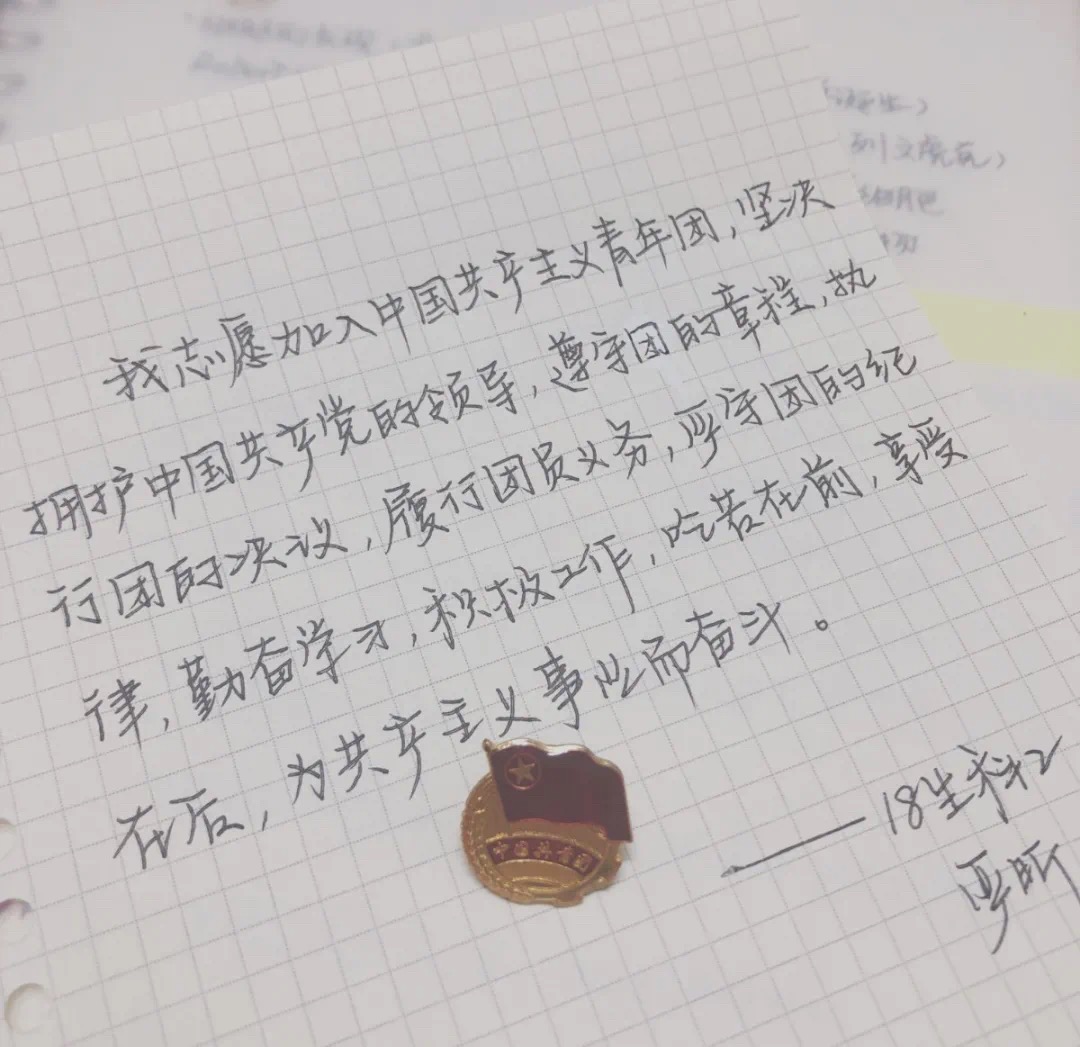 我志愿加入中国共产主义青年团，坚决
拥护中国共产党的领导，遵守团的章程，执
行团的决议，履行团员义务，严守团的纪
律，勤奋学习，积极工作，吃苦在前，享受
在后，为共产主义事业而奋斗。
中国共青团
——18生科2
严昕